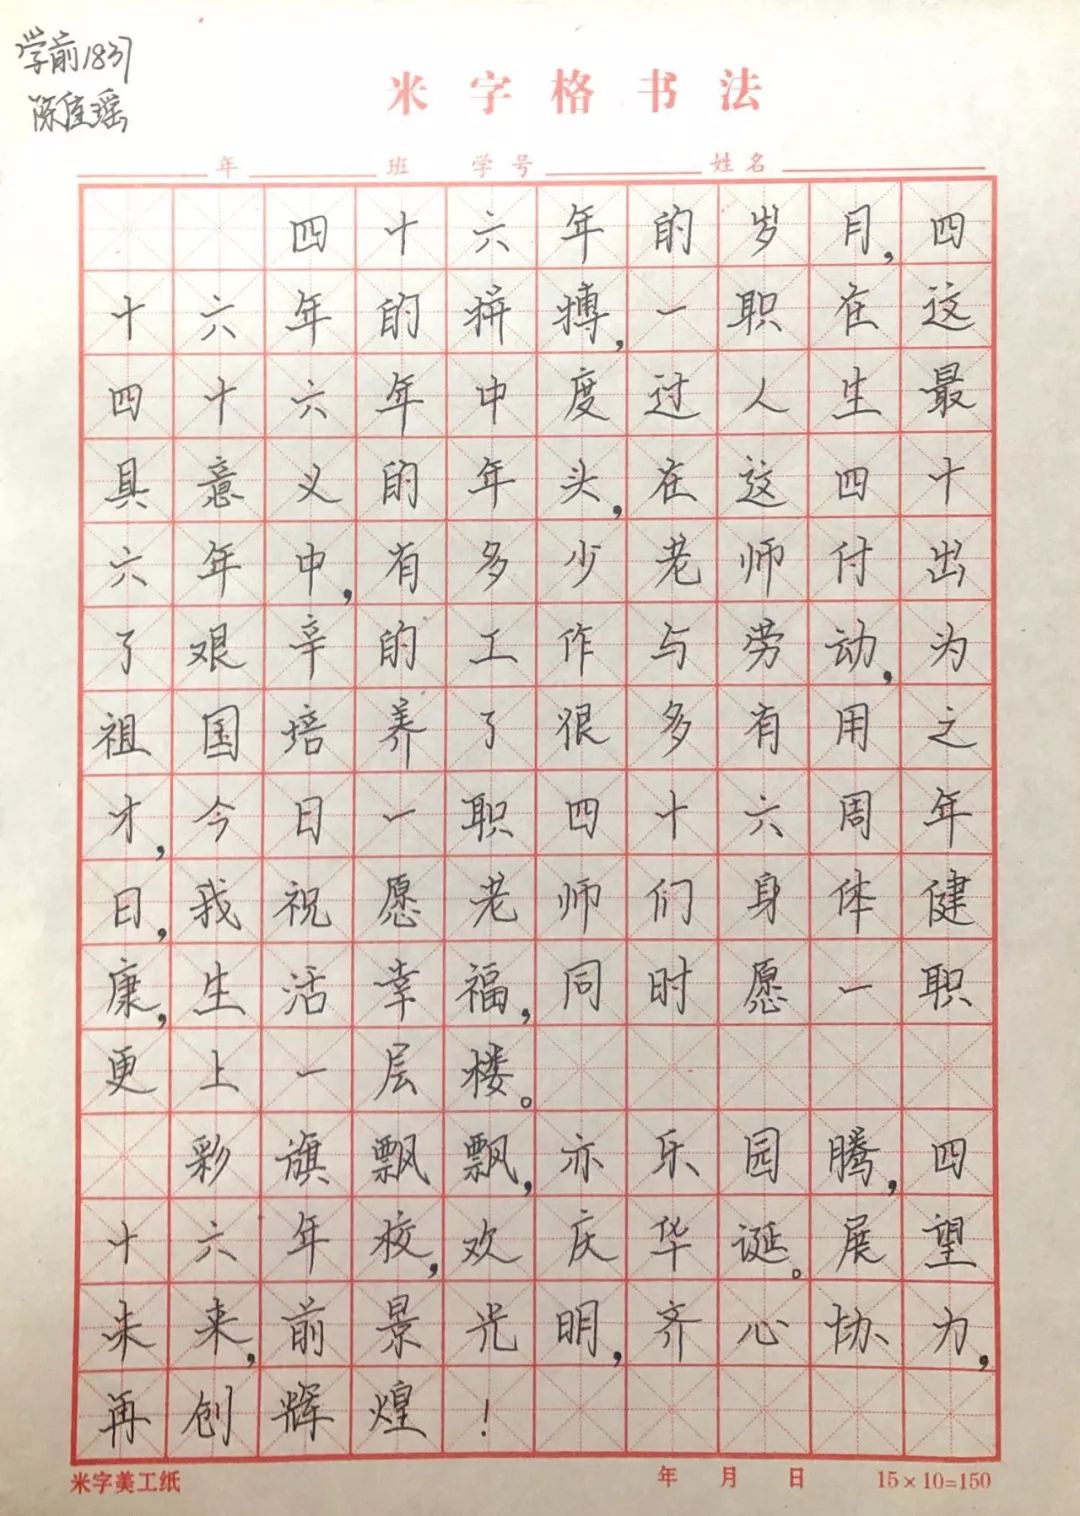 学前1837
陈佳瑶
米字格书法
年 班 学号 姓名
四十六年的岁月,四
十六年的拼搏,一职在这
四十六年中度过人生最
具意义的年头,在这四十
六年中,有多少老师付出
了艰辛的工作与劳动,为
祖国培养了很多有用之
才,今日一职四十六周年
日,我祝愿老师们身体健
康,生活幸福,同时愿一职
更上一层楼。
彩旗飘飘,亦乐园腾,四
十六年校,欢庆华诞。展望
未来,前景光明,齐心协力,
再创辉煌!
米字美工纸 年 月 日 15×10=150